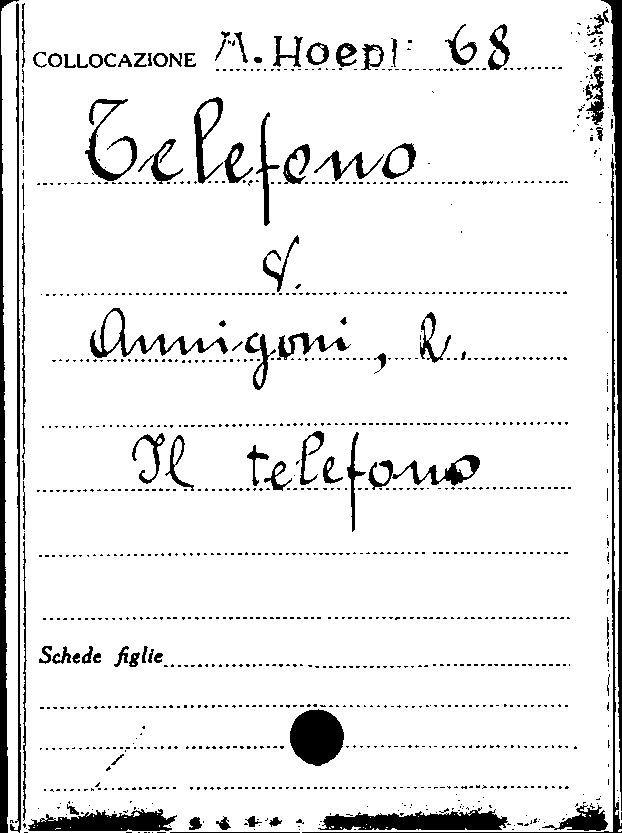 COLLOCAZIONE M. Hoepli 68
Telefono
V.
Annigoni, R.
Il telefono
Schede figlie